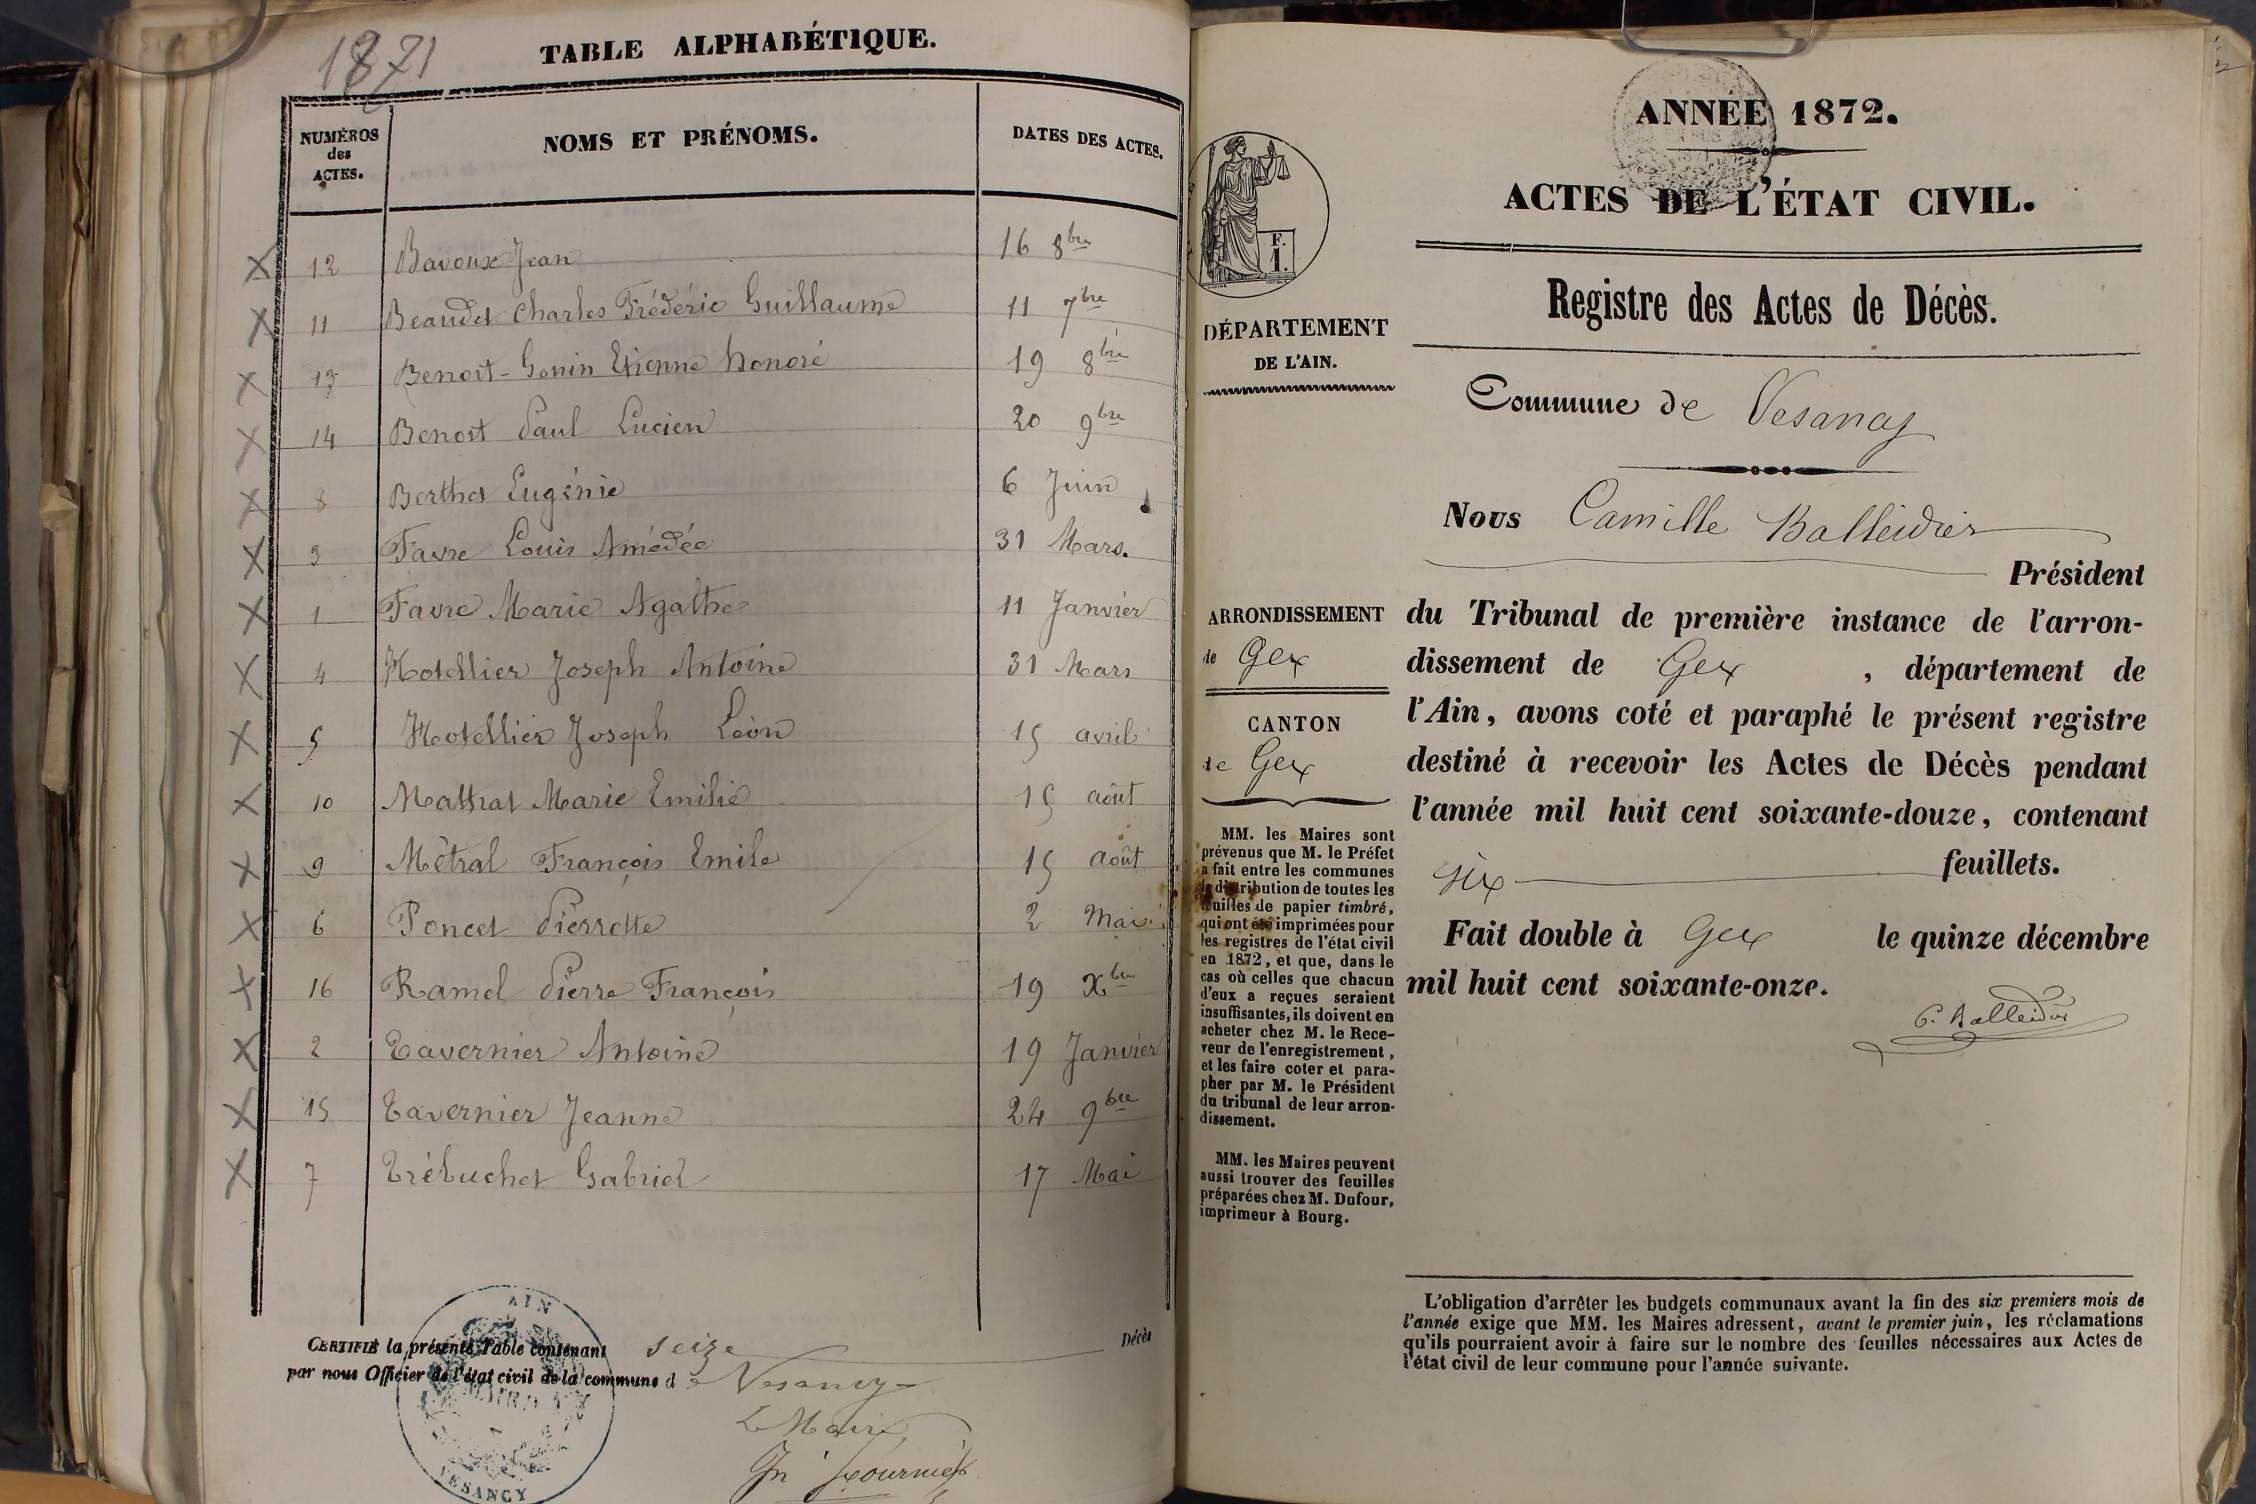 1871
TABLE ALPHABÉTIQUE.
NUMÉROS
des
ACTES.
NOMS ET PRÉNOMS.
DATES DES ACTES.
12 Bavoux Jean 16 8bre
11 Beaudet Charles Frédéric Guillaume 11 7bre
13 Benoit-Gonin Etienne honoré 19 8bre
14 Benoit Paul Lucien 20 9bre
8 Berthet Eugénie 6 Juin
3 Favre Louis Amédée 31 Mars.
1 Favre Marie Agathe 11 Janvier
4 Hotellier Joseph Antoine 31 Mars
5 Hotellier Joseph Léon 15 avril
10 Mathat Marie Emilie 15 août
9 Métral François Emile 15 août
6 Poncet Pierrette 2 Mai
16 Ramel Pierre François 19 Xbre
2 Tavernier Antoine 19 Janvier
15 Tavernier Jeanne 24 9bre
7 Trébuchet Gabriel 17 Mai
CERTIFIÉ la présente Table contenant seize Décès
par nous Officier de l'état civil de la commune de Vesancy
Le Maire
Fournier
AIN
VESANCY
ANNÉE 1872.
ACTES DE L'ÉTAT CIVIL.
Registre des Actes de Décès.
F.
1.
DÉPARTEMENT
DE L'AIN.
Commune de Vesancy
Nous Camille Balleidier
Président
du Tribunal de première instance de l'arron-
dissement de Gex, département de
l'Ain, avons coté et paraphé le présent registre
destiné à recevoir les Actes de Décès pendant
l'année mil huit cent soixante-douze, contenant
six feuillets.
Fait double à Gex le quinze décembre
mil huit cent soixante-onze.
C. Balleidier
ARRONDISSEMENT
de Gex
CANTON
de Gex
MM. les Maires sont
prévenus que M. le Préfet
a fait entre les communes
la distribution de toutes les
feuilles de papier timbré,
qui ont été imprimées pour
les registres de l'état civil
en 1872, et que, dans le
cas où celles que chacun
d'eux a reçues seraient
insuffisantes, ils doivent en
acheter chez M. le Rece-
veur de l'enregistrement,
et les faire coter et para-
pher par M. le Président
du tribunal de leur arron-
dissement.
MM. les Maires peuvent
aussi trouver des feuilles
préparées chez M. Dufour,
imprimeur à Bourg.
L'obligation d'arrêter les budgets communaux avant la fin des six premiers mois de
l'année exige que MM. les Maires adressent, avant le premier juin, les réclamations
qu'ils pourraient avoir à faire sur le nombre des feuilles nécessaires aux Actes de
l'état civil de leur commune pour l'année suivante.